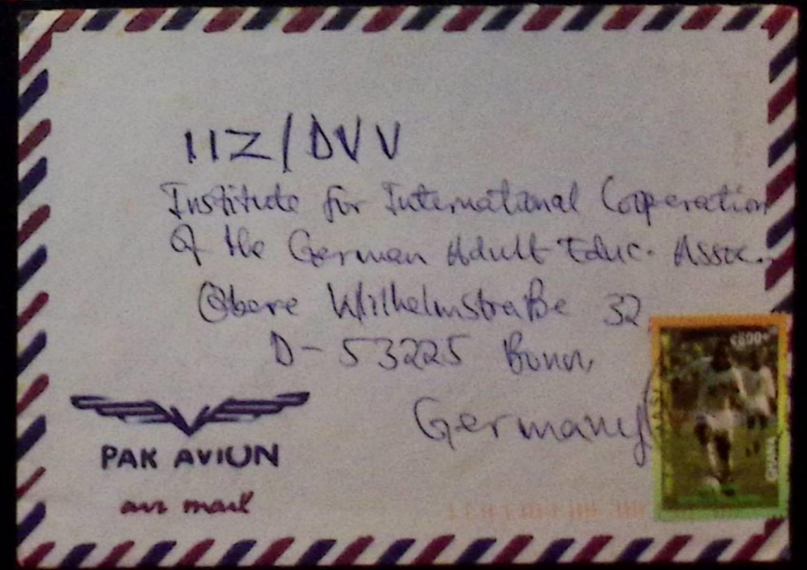 IIZ/DVV
Institute for International Cooperation
Of the German Adult Educ. Assoc.
Obere Wilhelmstraße 32
D-53225 Bonn
Germany
PAR AVION
air mail